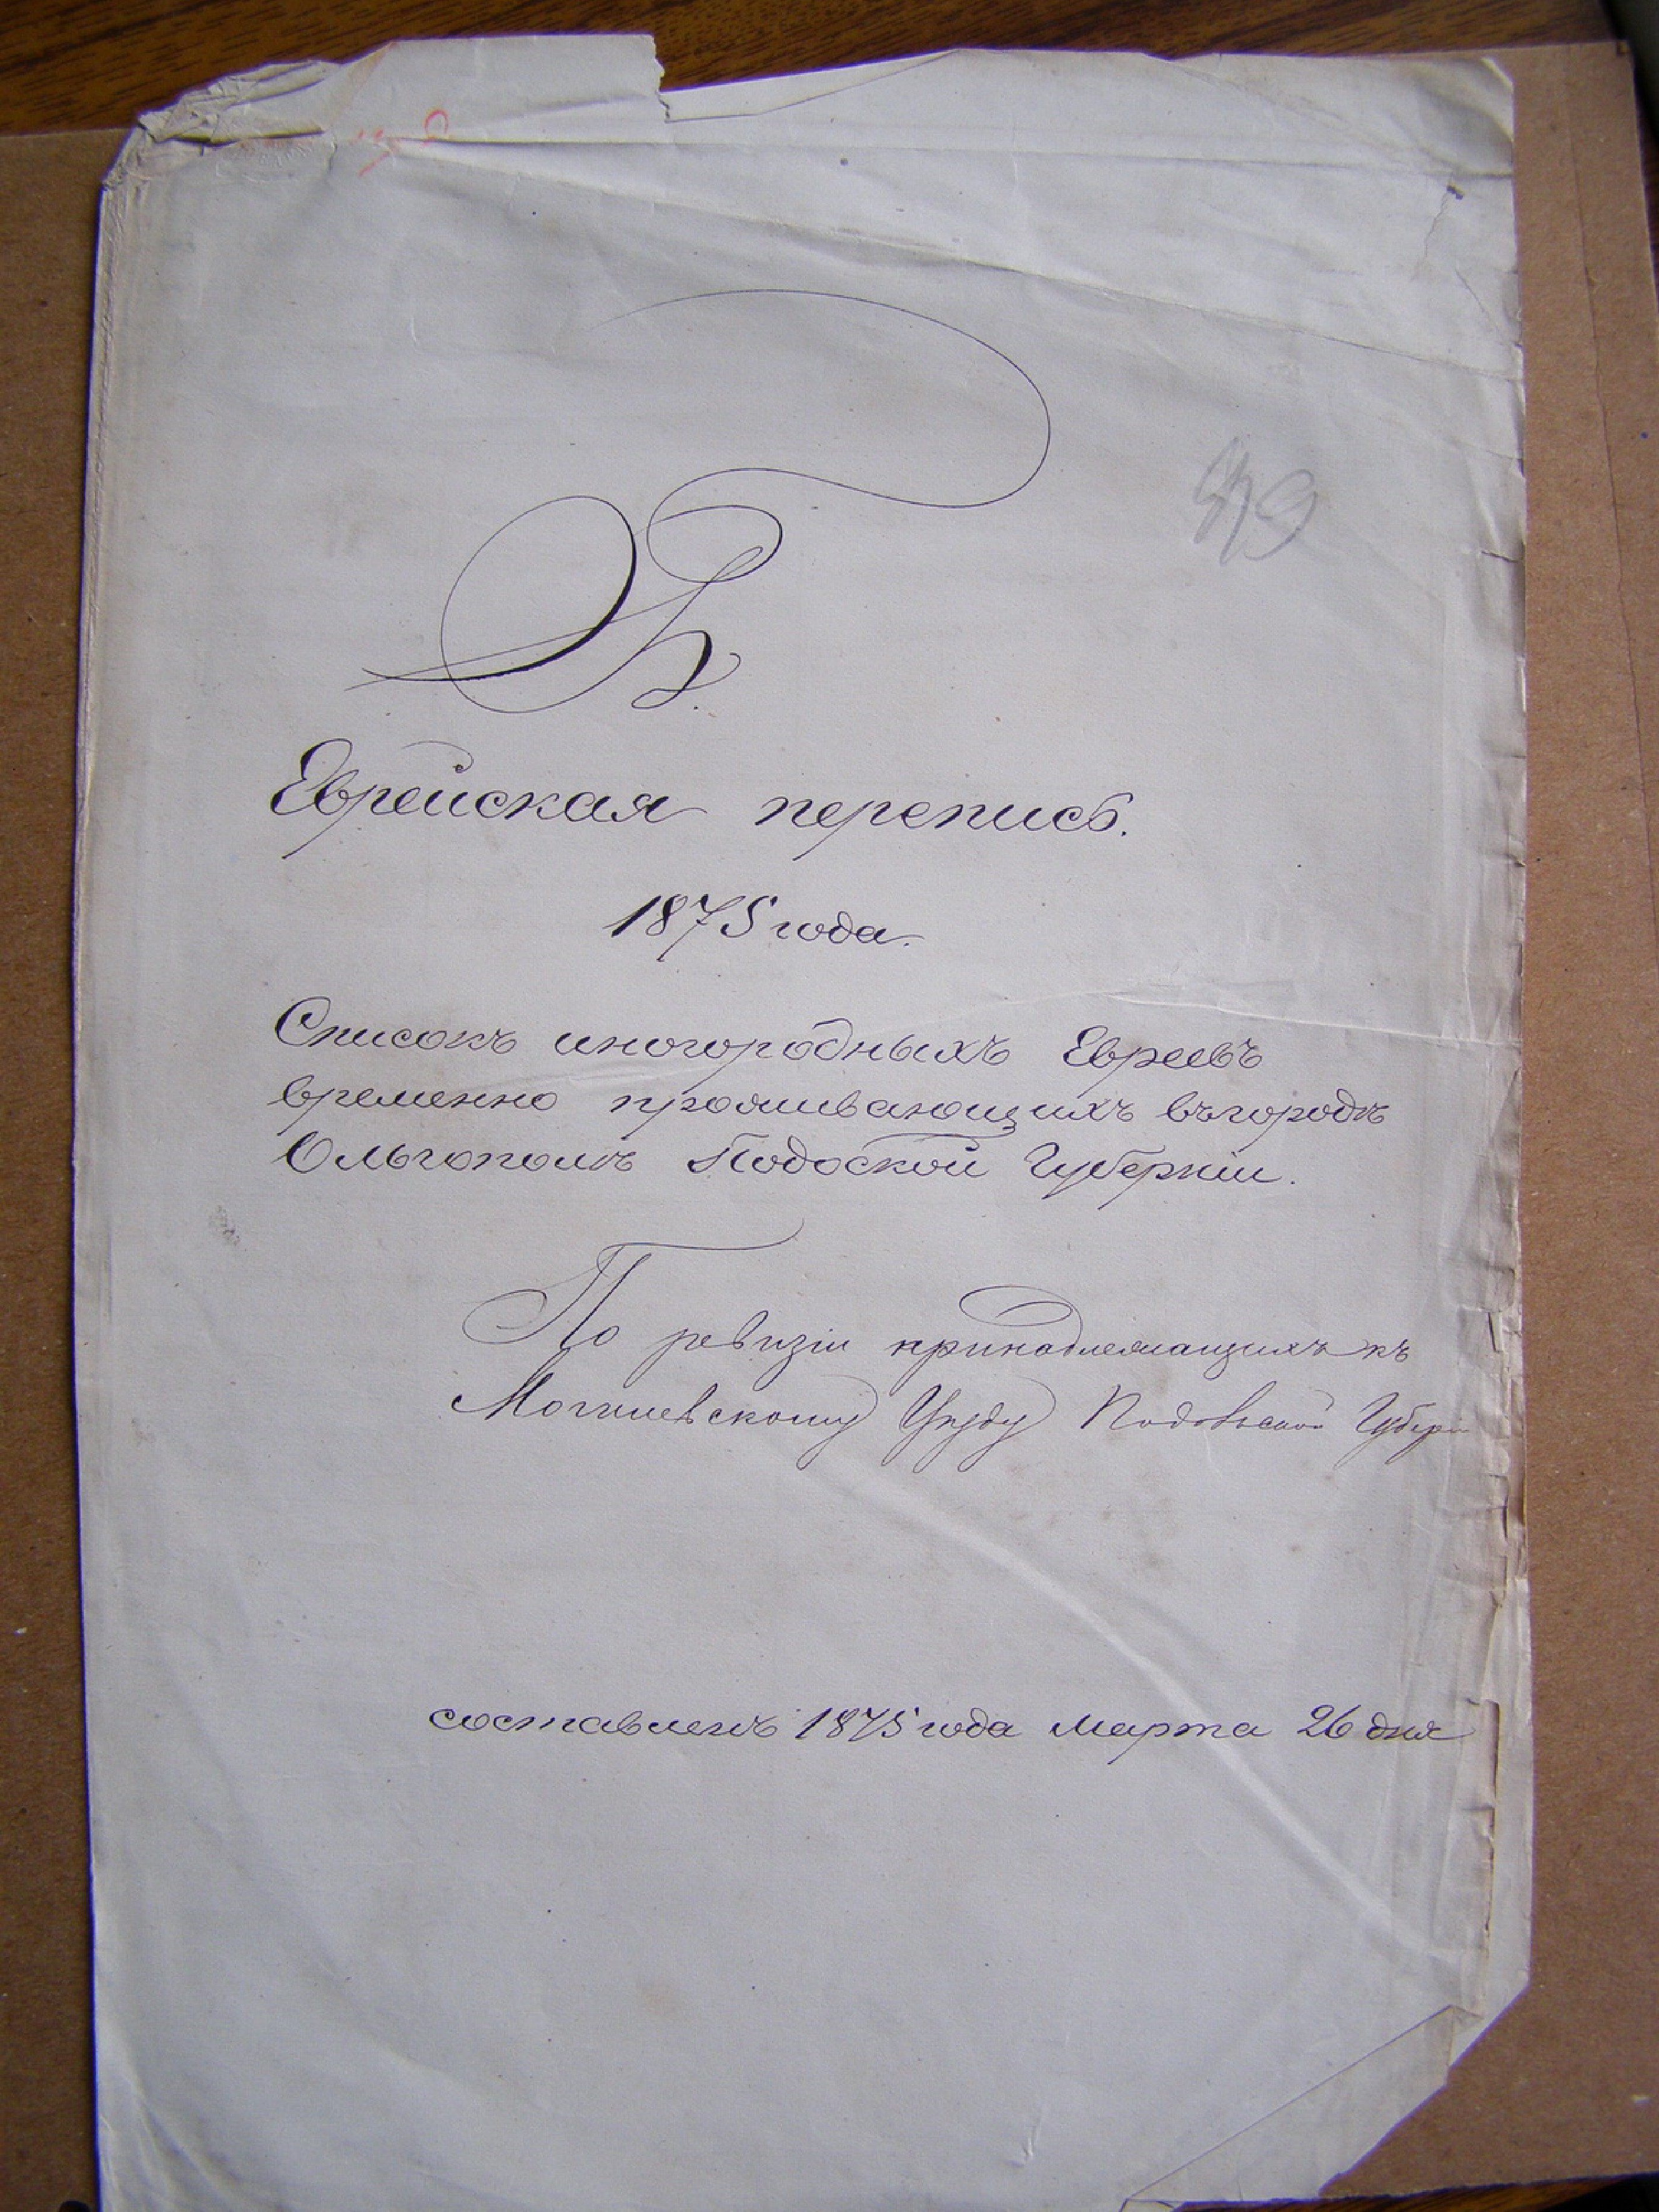 Б.
Еврейская перепись.
1875 года.
Списокъ иногородныхъ Евреевъ
временно проживающихъ въ городѣ
Ольгополѣ Подоской Губерніи.
По ревизіи принадлежащихъ къ
Могилевскому Уѣзду Подольской Губерн
составленъ 1875 года марта 26 дня